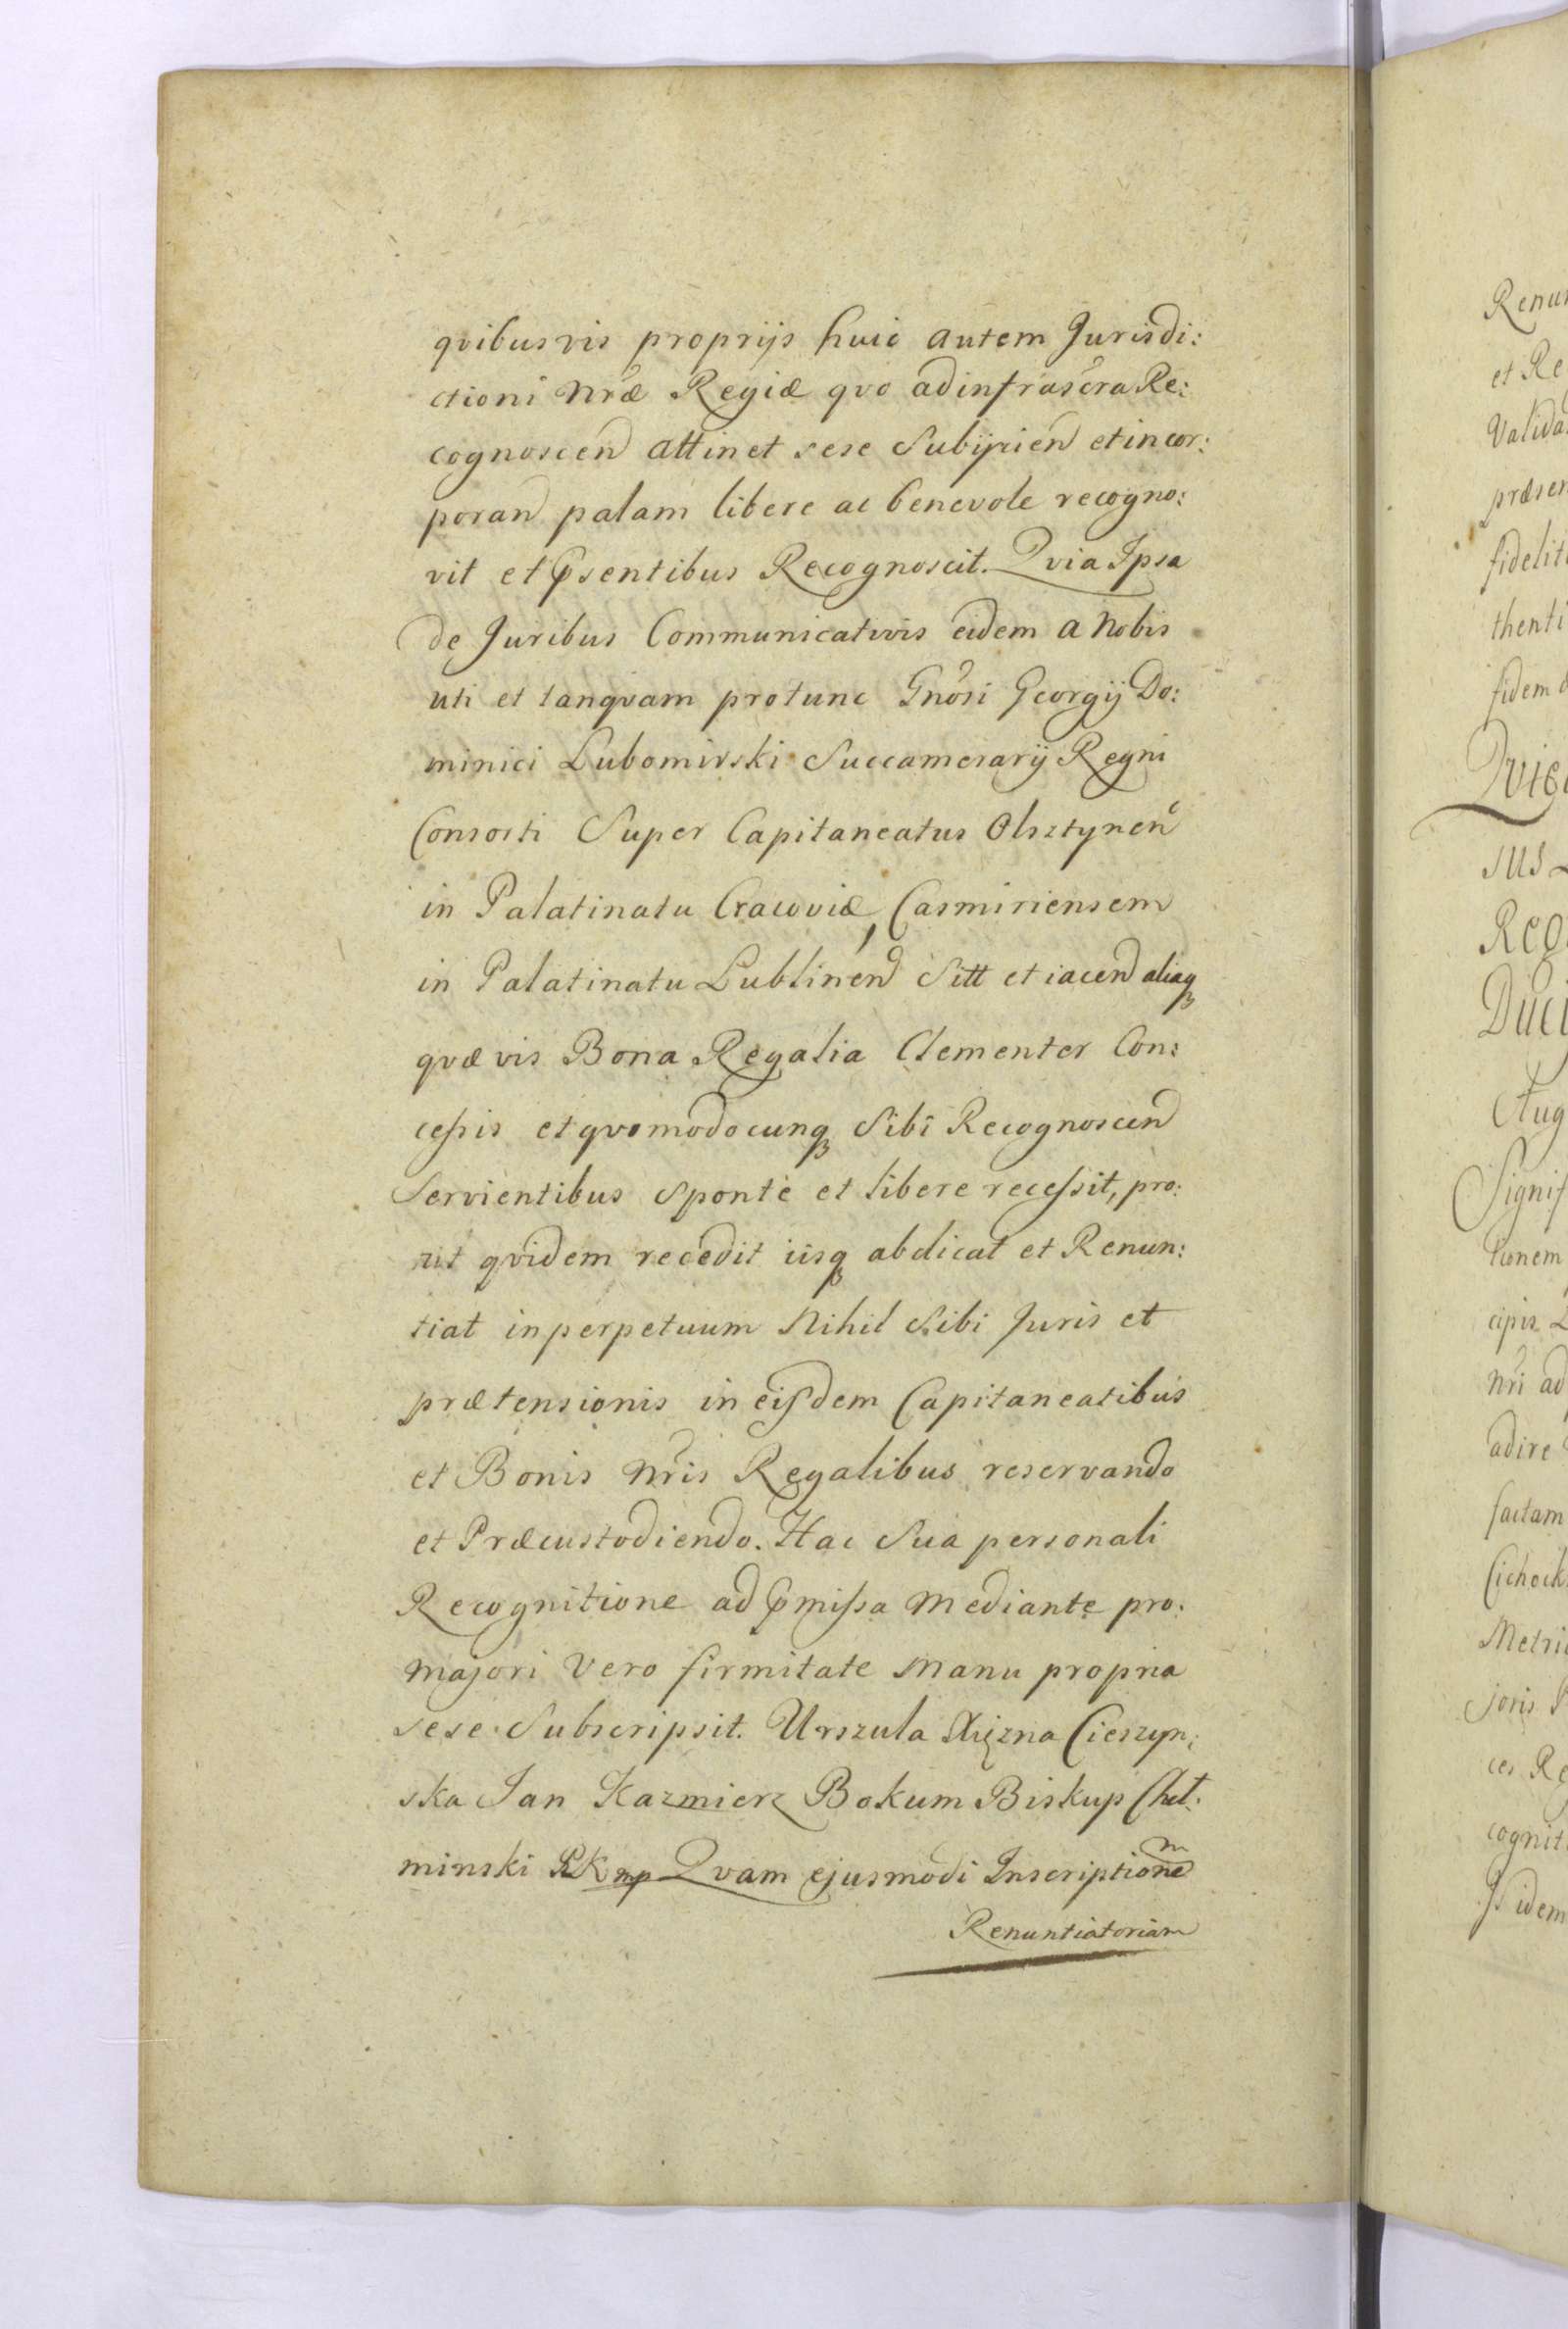 qvibusvis proprijs huic autem Jurisdi:
ctioni Nræ Regiæ qvo ad infrascra Re:
cognoscen attinet sese Subijcien et incor:
poran palam libere ac benevole recogno:
vit et Psentibus Recognoscit. Qvia Ipsa
de Juribus Communicativis eidem a Nobis
uti et tanqvam protunc Gnosi Georgij Do:
minici Lubomirski Succamerarij Regni
Consorti Super Capitaneatus Olsztynen
in Palatinatu Cracoviæ, Casmiriensem
in Palatinatu Lublinen Sitt et iacen aliaq
qvævis Bona Regalia Clementer Con:
cessis et qvomodocunq Sibi Recognoscen
Servientibus Sponte et libere recessit, pro:
ut qvidem recedit iisq abdicat et Renun:
tiat in perpetuum Nihil Sibi Juris et
prætensionis in eisdem Capitaneatibus
et Bonis Nris Regalibus reservando
et Præcustodiendo. Hac Sua personali
Recognitione ad Pmissa Mediante pro:
majori Vero firmitate Manu propria
sese Subscripsit. Urszula Xiężna Cieszyn:
ska Jan Kazmierz Bokum Biskup Cheł:
minski PK mp Qvam ejusmodi Inscriptionem
Renuntiatoriam
Renun
et Re
Valida
præsen
fidelit
thenti
fidem
sus
Reg
Duci
Aug
Signif
tionem
cipis
Nri ad
adire
factam
Cichock
Metri
joris
ces Re
cognit
idem